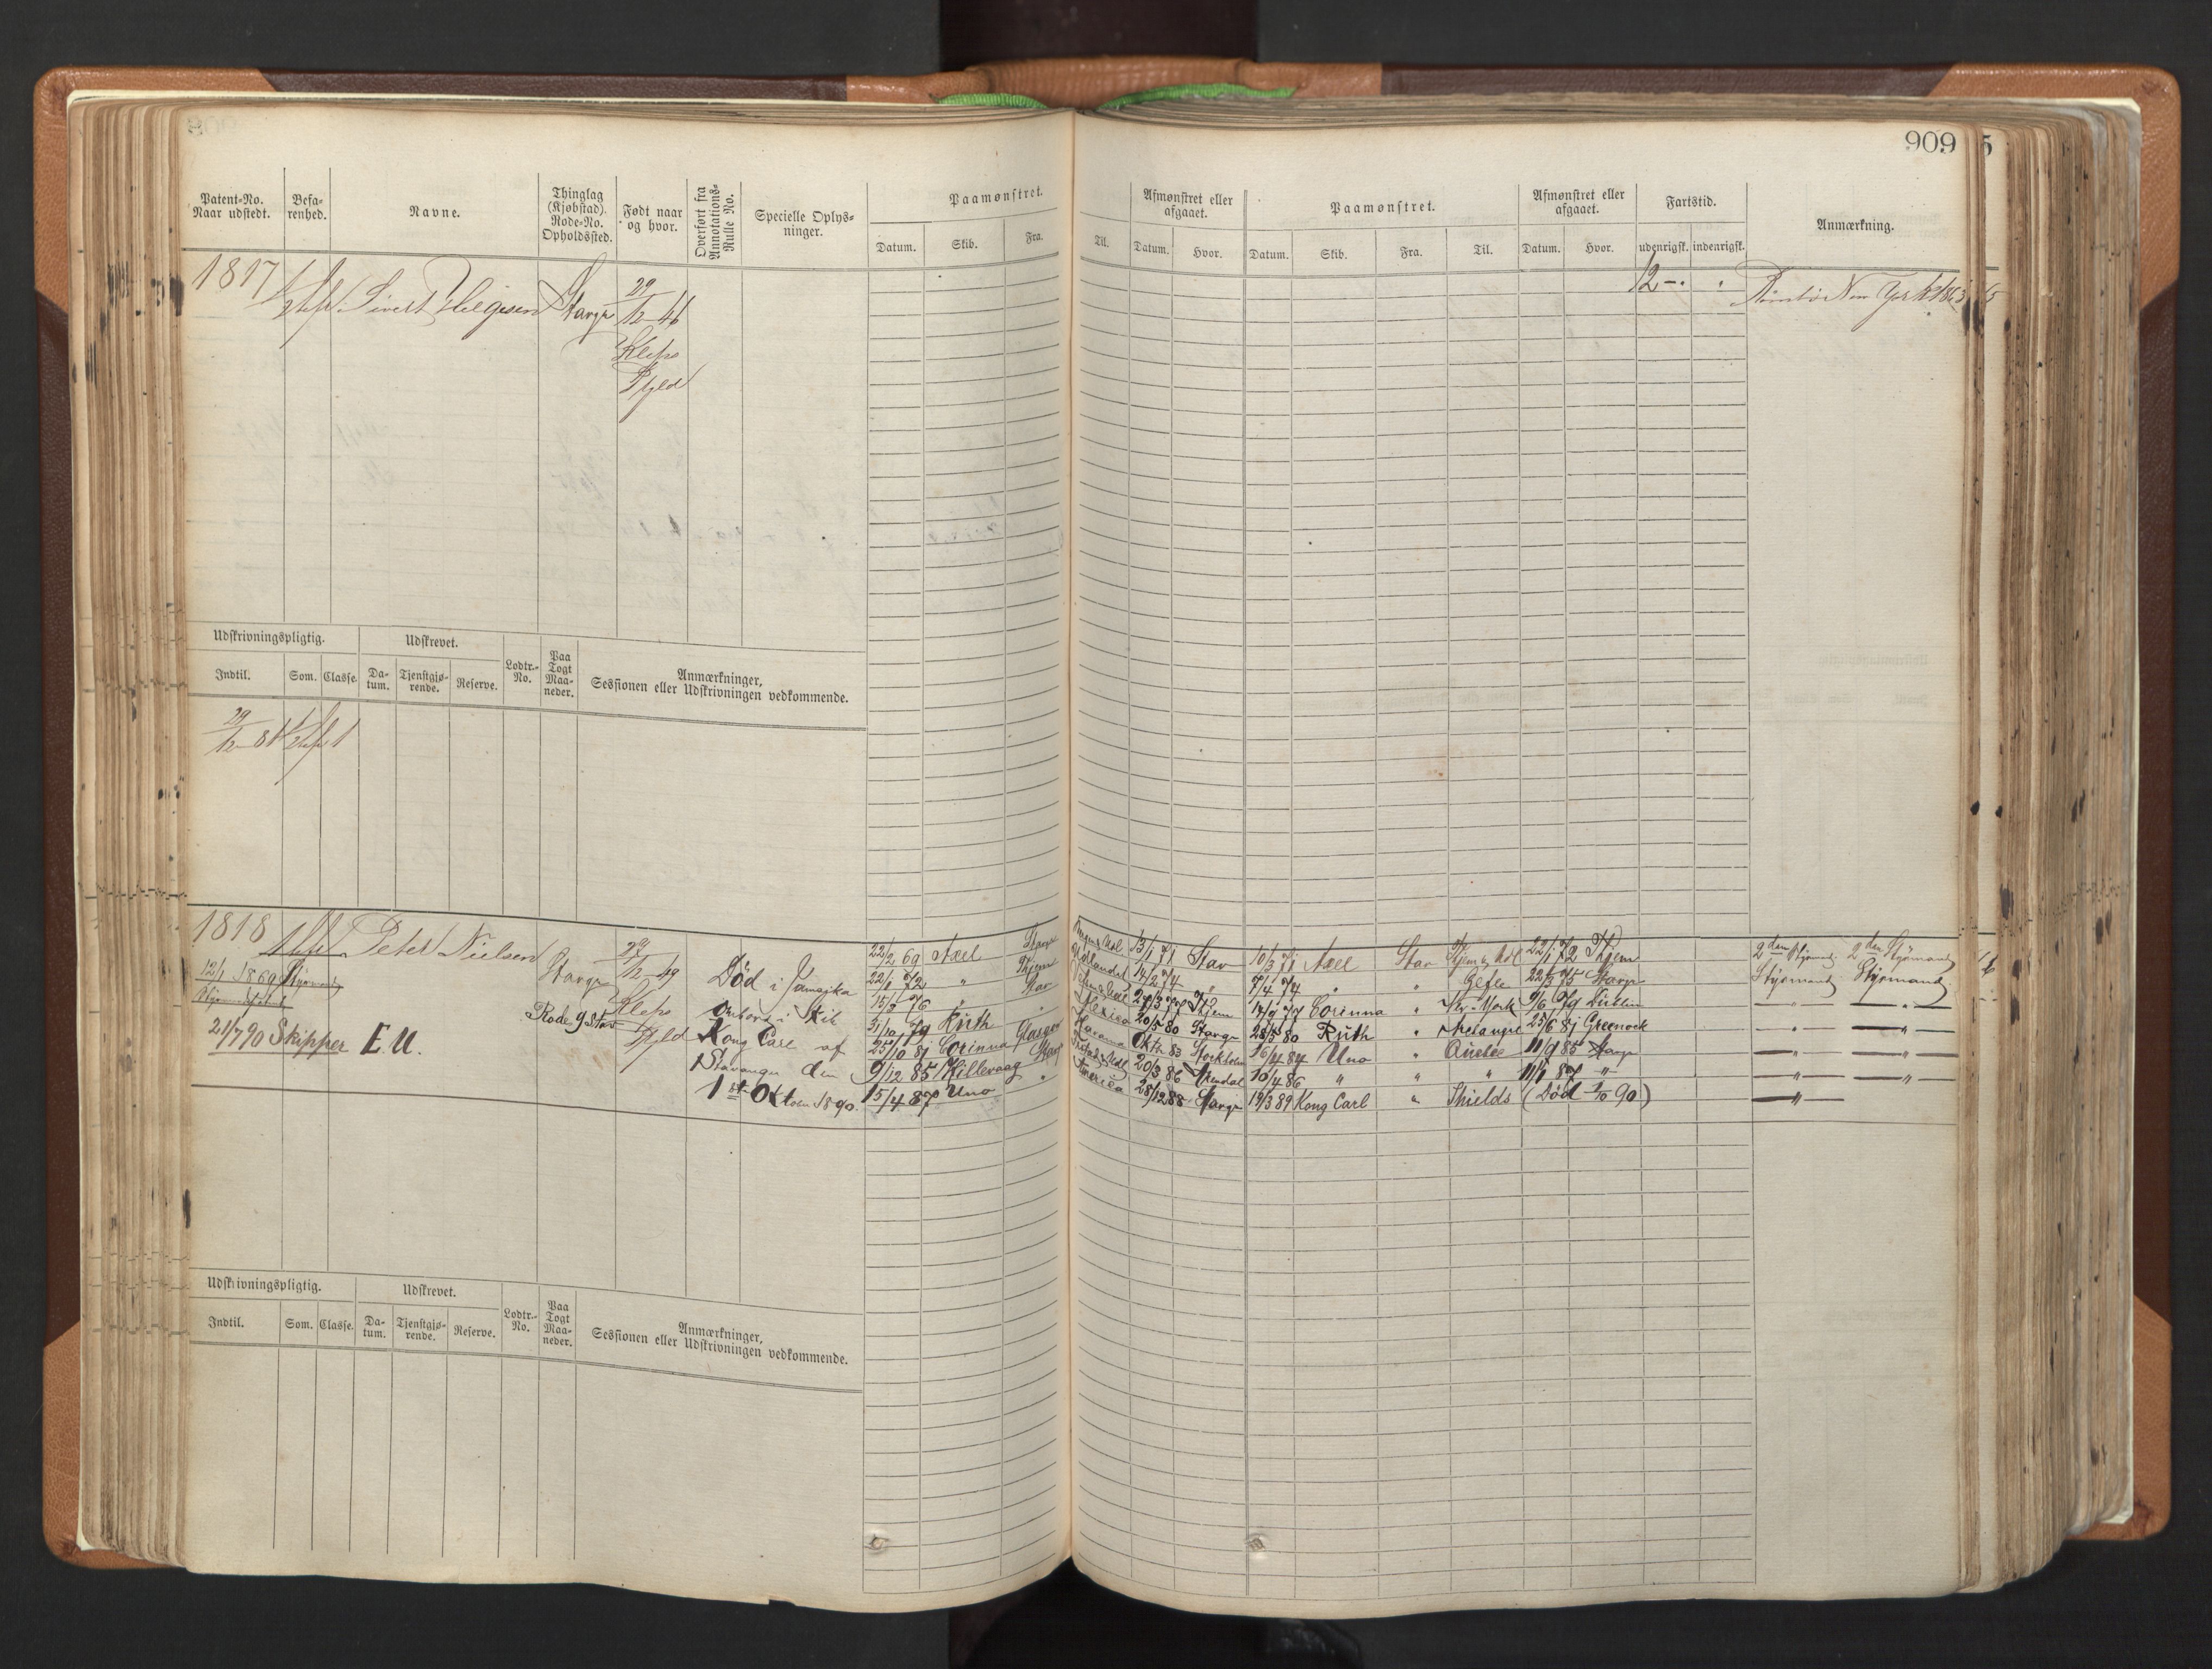 909
5
Patent-No. Naar udstedt.
Befarenhed.
Navne.
Thinglag (Kjøbstad). Rode-No. Opholdssted.
Født naar og hvor.
Overført fra Annotations-Rulle No.
Specielle Oplysninger.
Paamønstret.
Datum. Skib. Fra. Til.
Afmønstret eller afgaaet.
Datum. Hvor.
Paamønstret.
Datum. Skib. Fra. Til.
Afmønstret eller afgaaet.
Datum. Hvor.
Fartstid.
udenrigsk. indenrigsk.
Anmærkning.
1817 Sivert Helgesen Stavgr 29/12 46
Klep
Pgjld
12
New York 1863
Udskrivningspligtig.
Udskrevet.
Lodtr.-No.
Paa Togt Maaneder.
Anmærkninger, Sessionen eller Udskrivningen vedkommende.
Indtil. Som. Classe. Datum. Tjenstgjørende. Reserve.
29/12 81
1818 Peter Nielsen Stavgr 29/12 49
Klep
Pgjld
12/1 1869 Styrmand
Rode 9 Stav
21/7 90 Skipper E.U.
Død i Jamajka
ombord i Skib
Kong Carl af
Stavanger den
1ste Oktober 1890.
22/2 69 Axel Stavgr 13/1 71 Stav 10/3 71 Axel Stav 22/1 72 Thjem 2den Styrmand 2den Styrmand
22/1 72 " Thjem 14/2 74 " 7/4 74 " " Gefle 22/3 75 Stavgr Styrmand Styrmand
15/3 76 " Stav Thjem Corinna " N. York 9/6 79 Dublin " "
31/10 79 Ruth " Mexico 20/5 80 Stavgr 28/5 80 Ruth " 25/6 81 Greenock " "
25/10 81 Corinna Glasgow Havana Okth 83 Stockholm 16/4 84 Uno " Quebec 11/9 85 Stavgr " "
9/12 85 Hillevaag Stavgr 20/3 86 Arendal 10/4 86 " " " 11/1 87 " " "
15/4 87 Uno " America 28/12 88 Stavgr 19/3 89 Kong Carl " Shields (Død 1/10 90) "
Udskrivningspligtig.
Udskrevet.
Lodtr.-No.
Paa Togt Maaneder.
Anmærkninger, Sessionen eller Udskrivningen vedkommende.
Indtil. Som. Classe. Datum. Tjenstgjørende. Reserve.